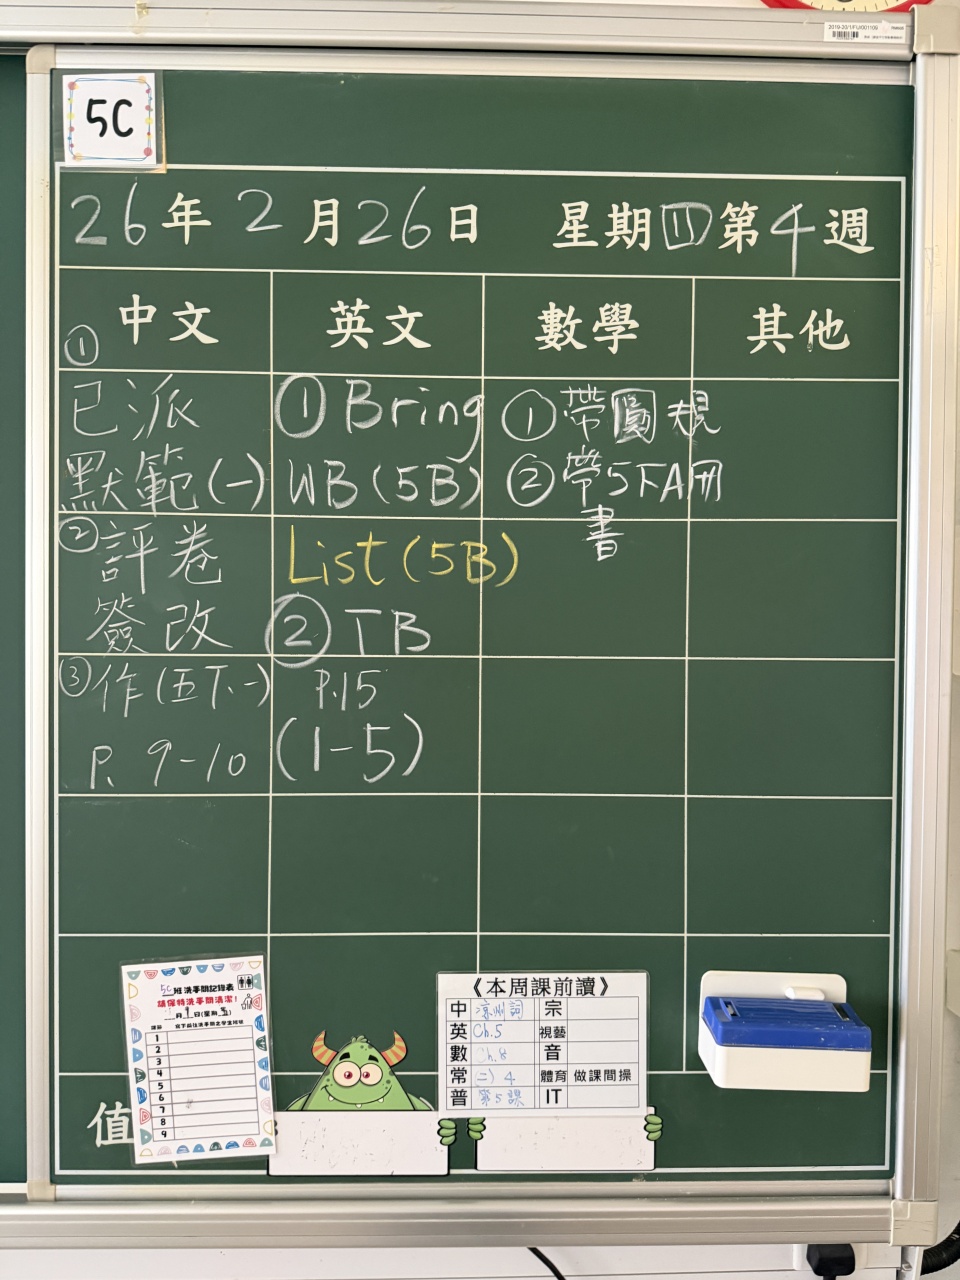 5C
26年2月26日 星期四第4週
中文
①
已派
默範(一)
②評卷
簽改
③作(五下、一)
P. 9-10
英文
①Bring
WB(5B)
List(5B)
②TB
P.15
(1-5)
數學
①帶圓規
②帶5下A冊
書
其他
值
5C班洗手間記錄表
請保持洗手間清潔!
1
2
3
4
5
6
7
8
9
《本周課前讀》
中 涼州詞 宗
英 Ch.5 視藝
數 Ch.8 音
常 (二) 4 體育 做課間操
普 第5課 IT